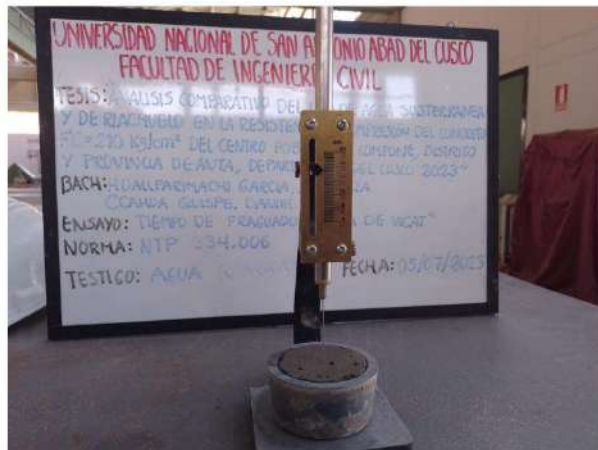 UNIVERSIDAD NACIONAL DE SAN ANTONIO ABAD DEL CUSCO
FACULTAD DE INGENIERI CIVIL
TESIS: ANALISIS COMPARATIVO DEL DE AGUA SUBTERRANEA
Y DE RIACHUELO EN LA RESISTEN MPRESION DEL CONCRETO
F'C=210 Kg/cm² DEL CENTRO POB COMPONE, DISTRITO
Y PROVINCIA DE ANTA, DEPAR DEL CUSCO 2023"
BACH: HUALLPARIMACHI GARCIA,
CCAHUA QUISPE,
ENSAYO: TIEMPO DE FRAGUADO DE VICAT"
NORMA: NTP 334.006
TESTIGO: AGUA FECHA: 05/07/2023